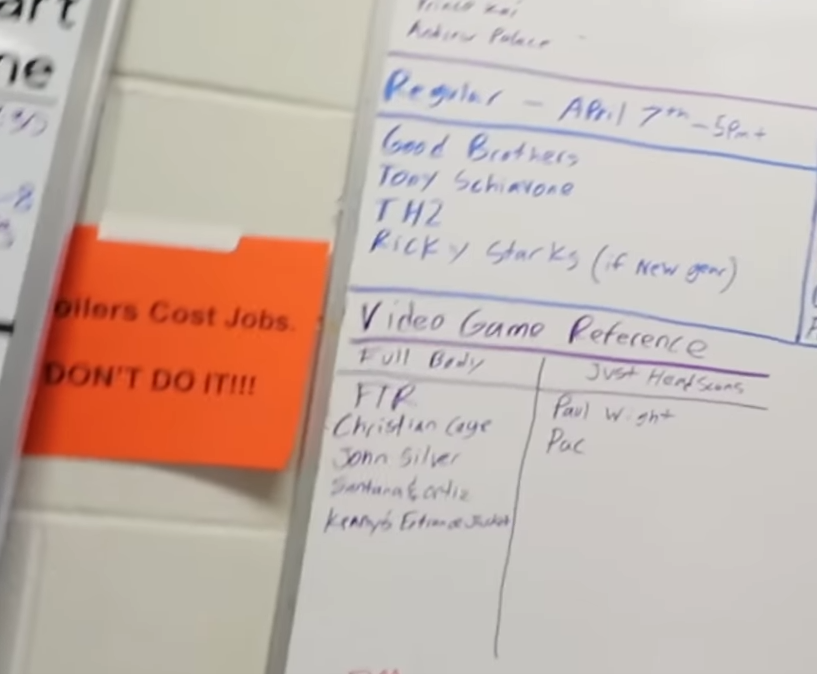 art
ne
oilers Cost Jobs.
DON'T DO IT!!!
Prince Kai
Andrew Palace
Regular - April 7th - 5pm+
Good Brothers
Tony Schiavone
TH2
Ricky Starks (if New gear)
Video Game Reference
Full Body
Just Head Scans
FTR
Christian Cage
John Silver
Santana & Ortiz
Kenny's Entrance Jacket
Paul Wight
Pac